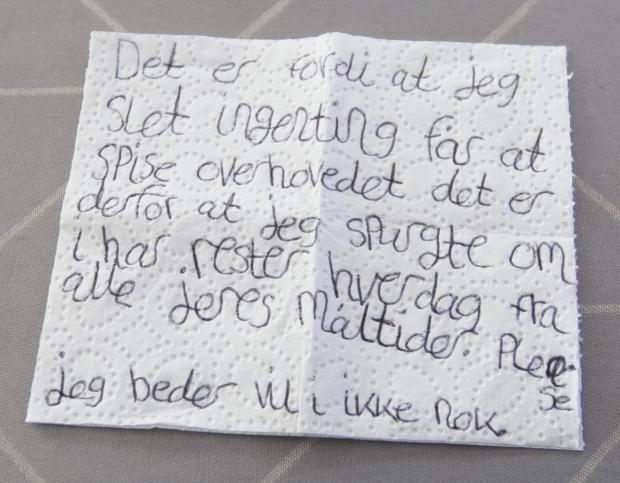 Det er fordi at jeg
slet ingenting får at
spise overhovedet det er
derfor at jeg spurgte om
i har rester hverdag fra
alle jeres måltider. Pleease
jeg beder vil i ikke nok.